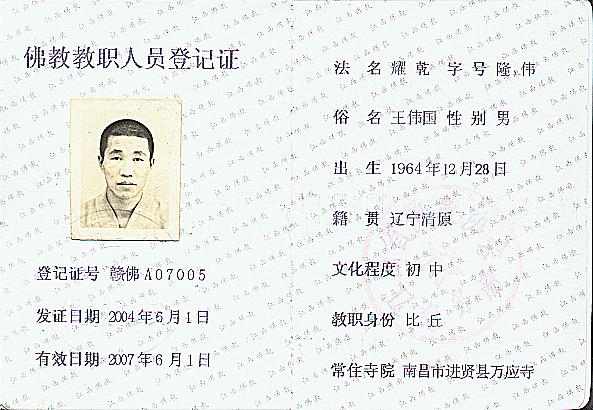 佛教教职人员登记证
登记证号 赣佛A07005
发证日期 2004年6月1日
有效日期 2007年6月1日
法 名 耀乾 字 号 隆伟
俗 名 王伟国 性 别 男
出 生 1964年12月28日
籍 贯 辽宁清原
文化程度 初中
教职身份 比丘
常住寺院 南昌市进贤县万应寺